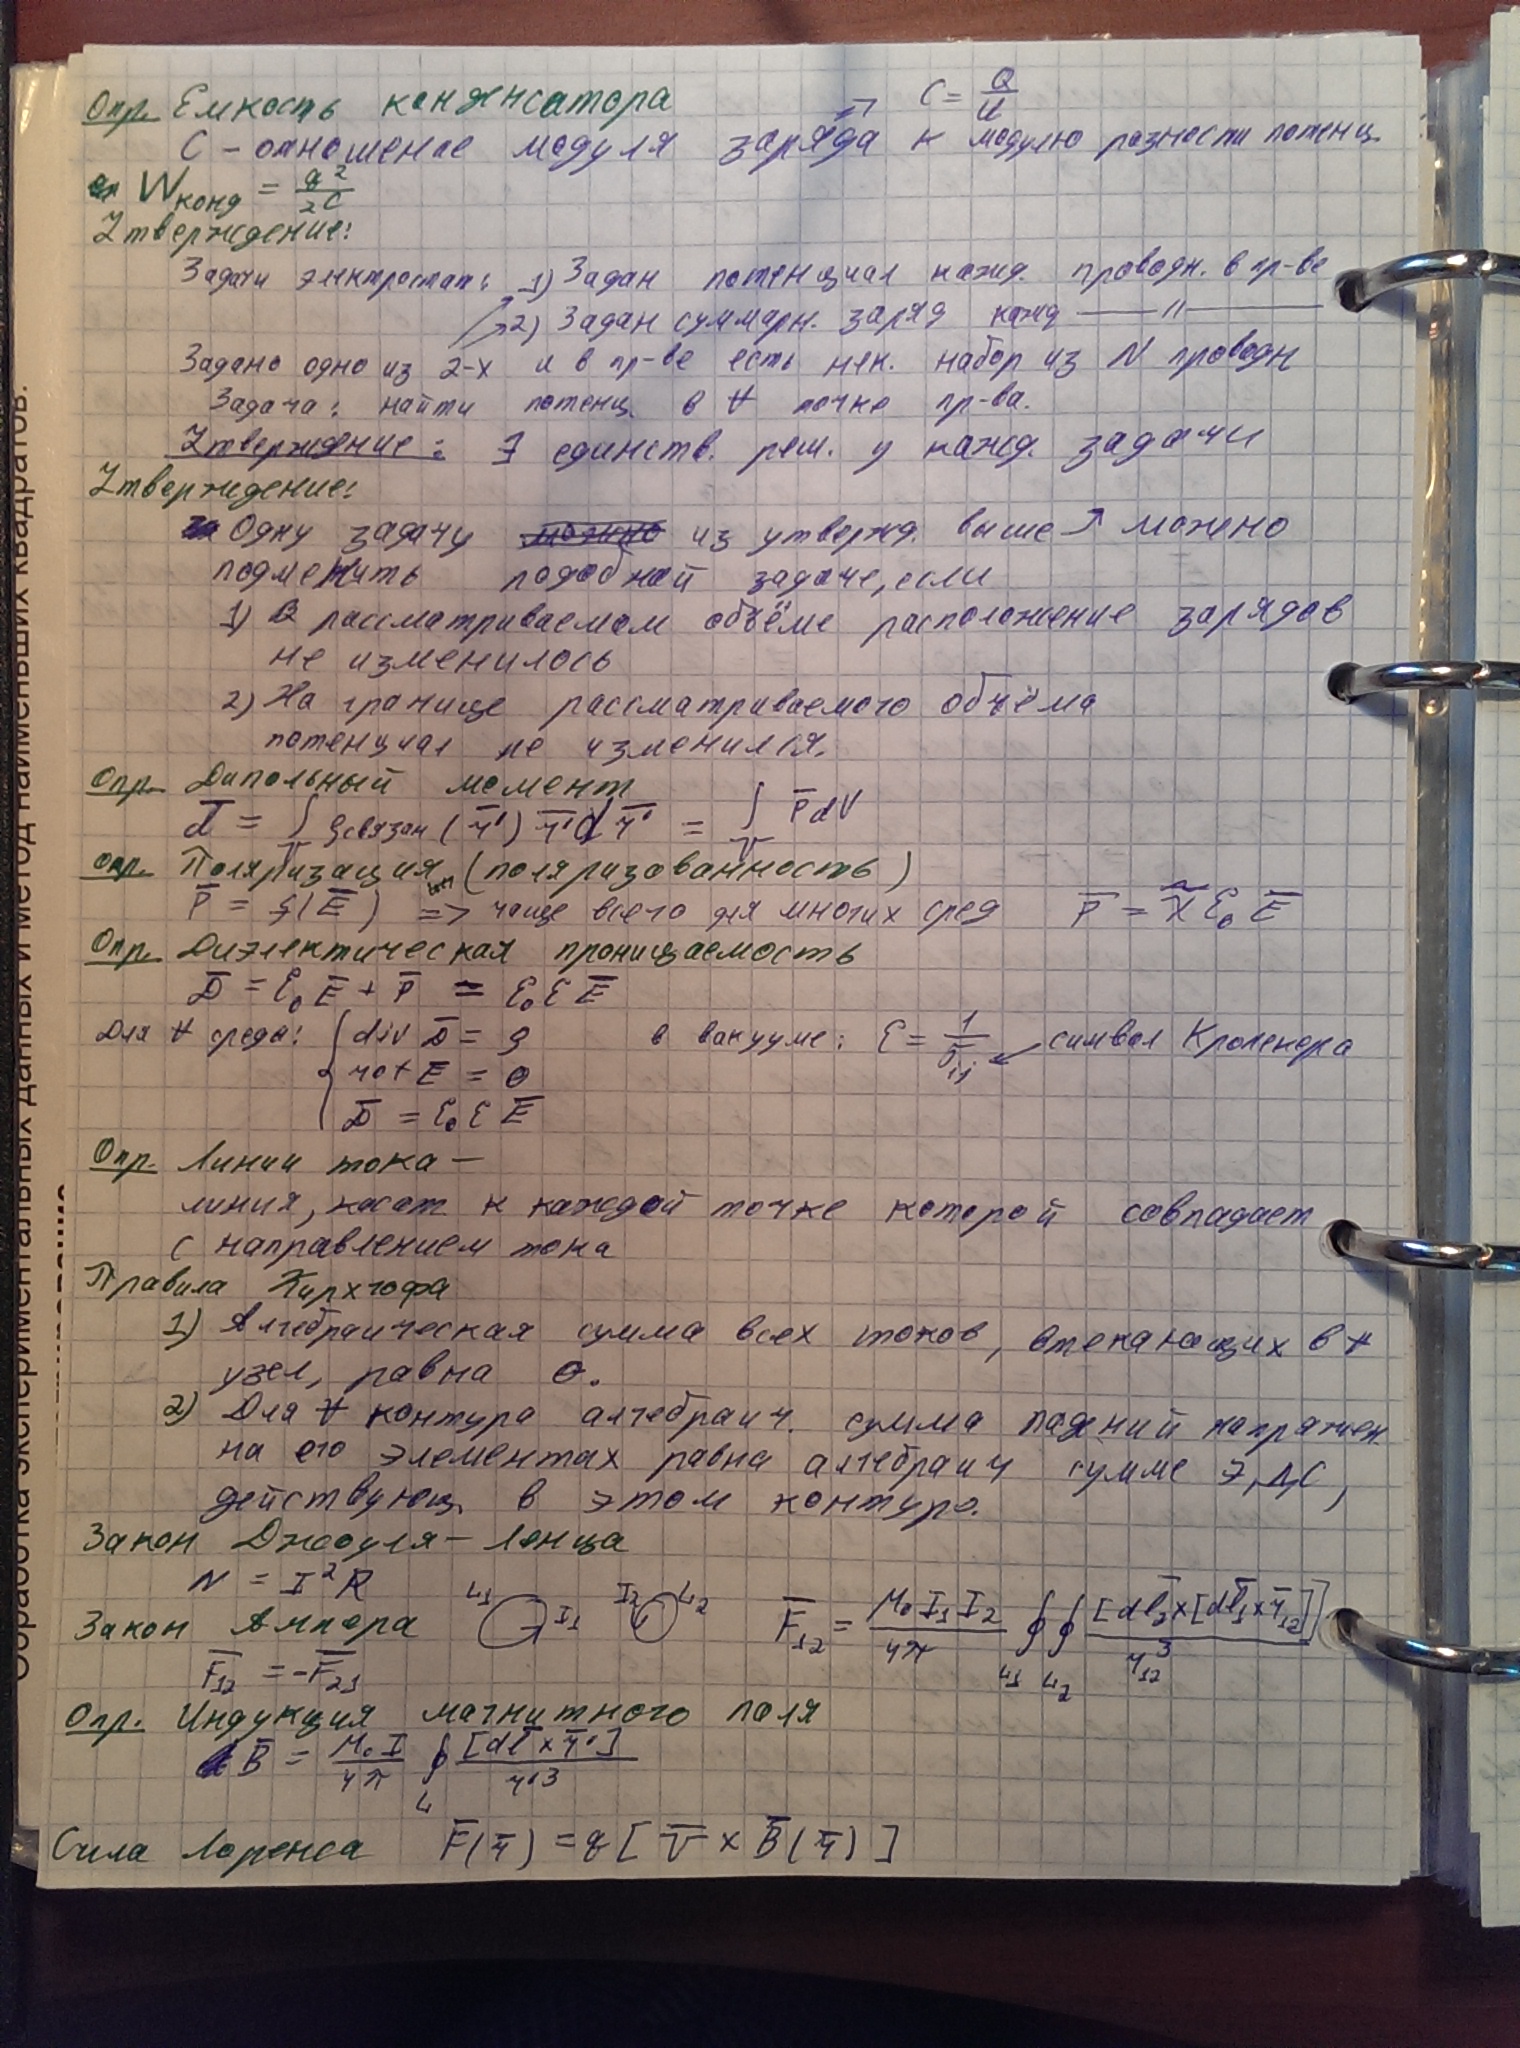 Опр. Емкость конденсатора C = Q/U
C – отношение модуля заряда к модулю разности потенц.
W конд = q²/2C
Утверждение:
Задачи электростат: 1) Задан потенциал кажд. проводн. в пр-ве
2) Задан суммарн. заряд кажд —— 〃 ——
Задано одно из 2-х и в пр-ве есть нек. набор из N проводн
Задача: найти потенц. в ∀ точке пр-ва.
Утверждение: ∃ единств. реш. у кажд. задачи
Утверждение:
Одну задачу можно из утвержд. выше ↗ можно
подменить подобной задаче, если
1) В рассматриваемом объёме расположение зарядов
не изменилось
2) На границе рассматриваемого объёма
потенциал не изменился.
Опр. Дипольный момент
d̅ = ∫ᵥ ρсвязан (r̅') r̅' d r̅' = ∫ᵥ P̅ dV
Опр. Поляризация (поляризованность)
P̅ = f(E̅) => чаще всего для многих сред P̅ = χ̃ ε₀ E̅
Опр. Диэлектическая проницаемость
D̅ = ε₀ E̅ + P̅ = ε₀ ε E̅
Для ∀ среды: { div D̅ = ρ в вакууме: ε = 1/δij ← символ Кроленера
rot E̅ = 0
D̅ = ε₀ ε E̅
Опр. Линии тока –
линия, касат. к каждой точке которой совпадает
с направлением тока
Правила Кирхгофа
1) Алгебраическая сумма всех токов, втекающих в ∀
узел, равна 0.
2) Для ∀ контура алгебраич. сумма падений напряжен.
на его элементах равна алгебраич сумме ЭДС,
действующ. в этом контуре.
Закон Джоуля – Ленца
N = I²R
L1 I1 I2 L2
Закон Ампера F̅₁₂ = μ₀ I₁ I₂ / 4π ∮L1 ∮L2 [dl̅₂ × [dl̅₁ × r̅₁₂]] / r₁₂³
F̅₁₂ = -F̅₂₁
Опр. Индукция магнитного поля
B̅ = μ₀ I / 4π ∮L [dl̅ × r̅'] / r'³
Сила Лоренса F̅(r̅) = q [ V̅ × B̅(r̅) ]
Обработка экспериментальных данных и метод наименьших квадратов.